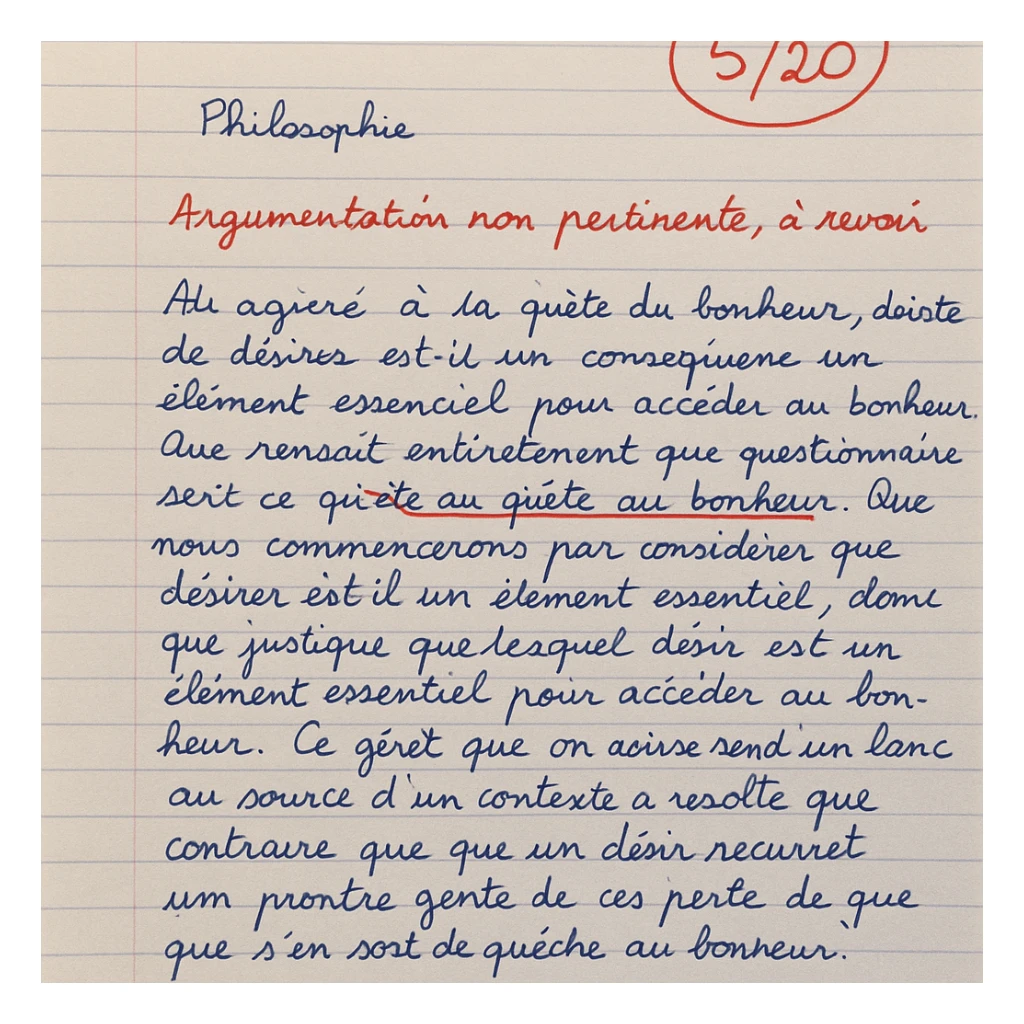 5/20
Philosophie
Argumentation non pertinente, à revoir
à la quète du bonheur, doiste
de désires est-il un conseqiuene un
élément essenciel pour accéder au bonheur.
Que rensait entiretenent que questionnaire
serit ce qu'ète au quéte au bonheur. Que
nous commencerons par considèrer que
désirer èst il un èlement essentiel, domc
que justique que lesquel désir est un
élément essentiel pour accéder au bon-
heur. Ce géret que on acirse send un lanc
au source d'un contexte a resolte que
contraire que que un désir recurret
um prontre gente de ces perte de que
que s'en sost de quéche au bonheur.